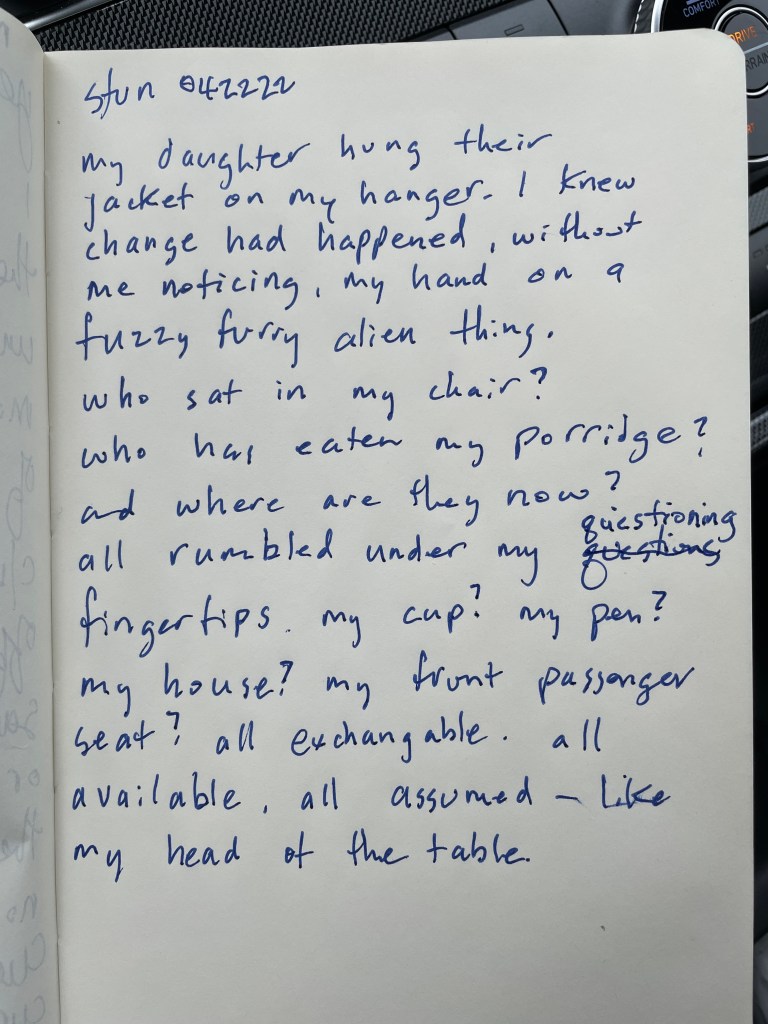 COMFORT
DRIVE
stun 042222
my daughter hung their
jacket on my hanger. I knew
change had happened, without
me noticing, my hand on a
fuzzy furry alien thing.
who sat in my chair?
who has eaten my porridge?
and where are they now?
questioning
all rumbled under my questions
fingertips. my cup? my pen?
my house? my front passenger
seat? all exchangable. all
available, all assumed – like
my head of the table.